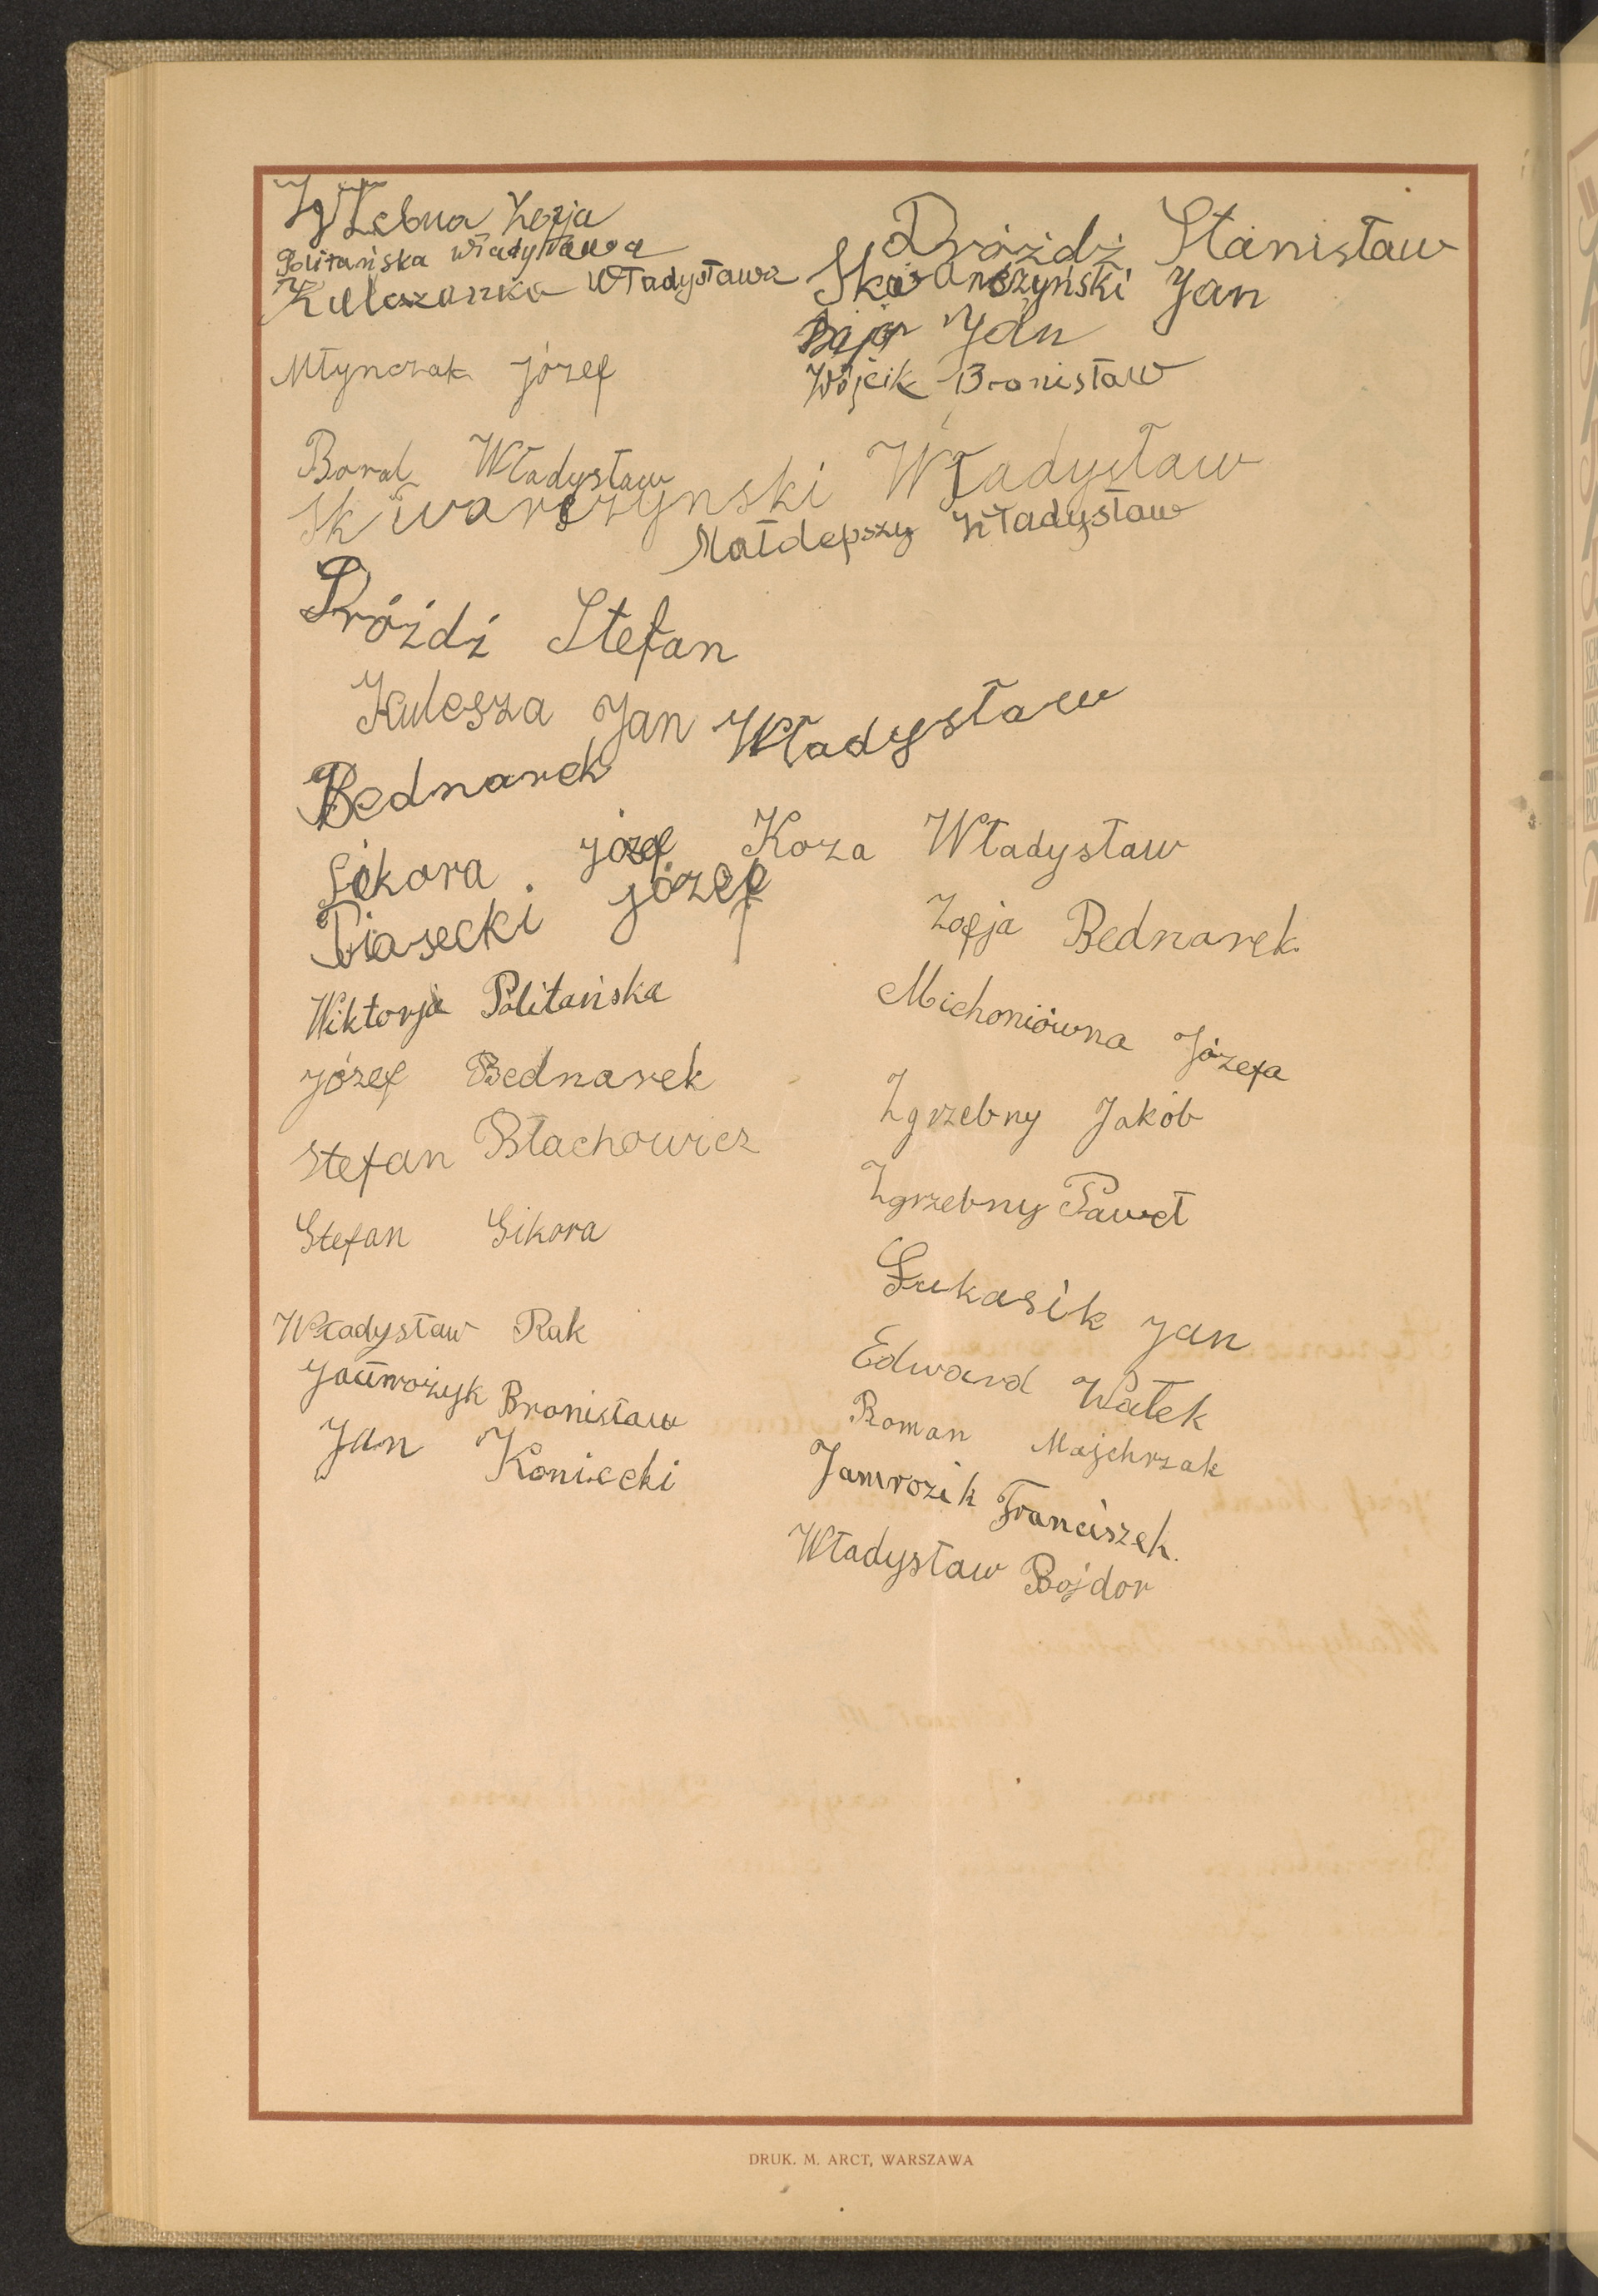 Zofja
Politańska Władysława
Kuleszanka Władysława
Młynczak Józef
Dróżdż Stanisław
Skowroński Jan
Bajor Jan
Wójcik Bronisław
Boral Władysław
Skwarczynski Władysław
Małdepszy Władysław
Dróżdź Stefan
Kulesza Jan
Bednarek Władysław
Sikora Józef
Koza Władysław
Piasecki Józef
Zofja Bednarek
Wiktorja Politańska
Michoniówna Józefa
Józef Bednarek
Zgrzebny Jakób
Stefan Błachowicz
Zgrzebny Paweł
Stefan Sikora
Łukasik Jan
Władysław Rak
Edward Wałek
Bronisław
Roman Majchrzak
Jan Koniecki
Jamrozik Franciszek.
Władysław Bojdor
DRUK. M. ARCT, WARSZAWA